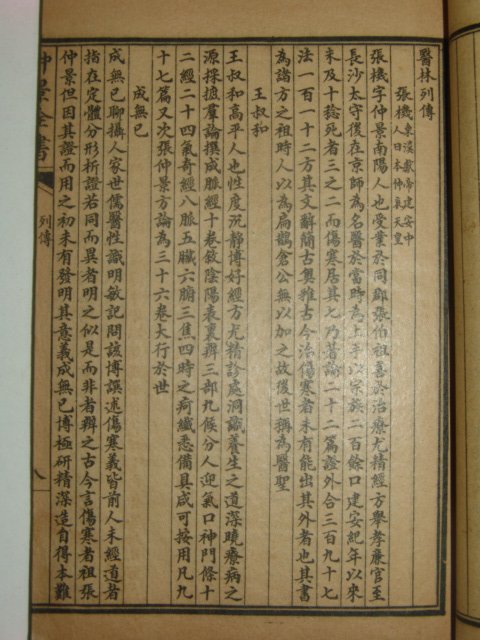 醫林列傳
張機 東漢獻帝建安中
人日本仲哀天皇
張機字仲景南陽人也受業於同郡張伯祖善於治療尤精經方舉孝廉官至
長沙太守後在京師為名醫於當時為上手以宗族二百餘口建安紀年以來
未及十稔死者三之二而傷寒居其七乃著論二十二篇證外合三百九十七
法一百一十二方其文辭簡古奧雅古今治傷寒者未有能出其外者也其書
為諸方之祖時人以為扁鵲倉公無以加之故後世稱為醫聖
王叔和
王叔和高平人也性度沉靜博好經方尤精診處洞識養生之道深曉療病之
源採摭羣論撰成脈經十卷敘陰陽表裏辨三部九候分人迎氣口神門條十
二經二十四氣奇經八脈五臟六腑三焦四時之痾纖悉備具咸可按用凡九
十七篇又次張仲景方論為三十六卷大行於世
成無已
成無已聊攝人家世儒醫性識明敏記問該博譔述傷寒義皆前人未經道者
指在定體分形析證若同而異者明之似是而非者辨之古今言傷寒者祖張
仲景但因其證而用之初未有發明其意義成無已博極研精深造自得本難
仲景全書
列傳
八